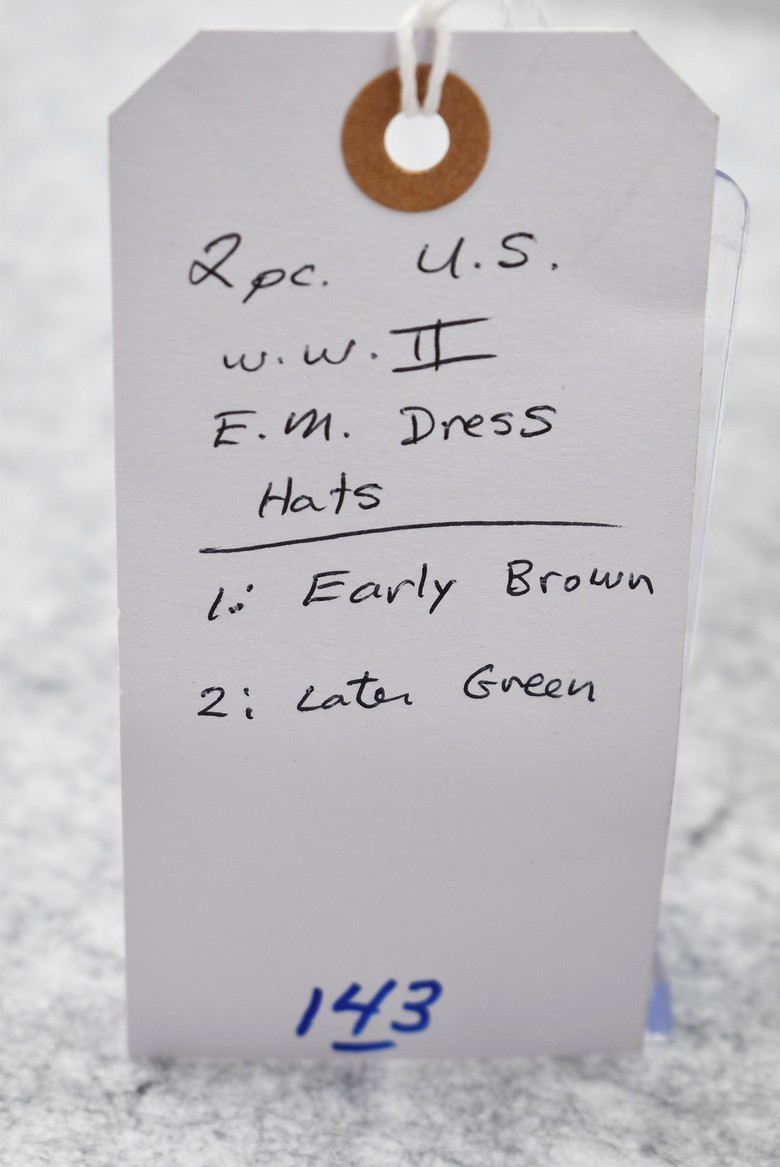 2 pc. U.S.
W.W. II
E.M. Dress
Hats
1: Early Brown
2: Later Green
143